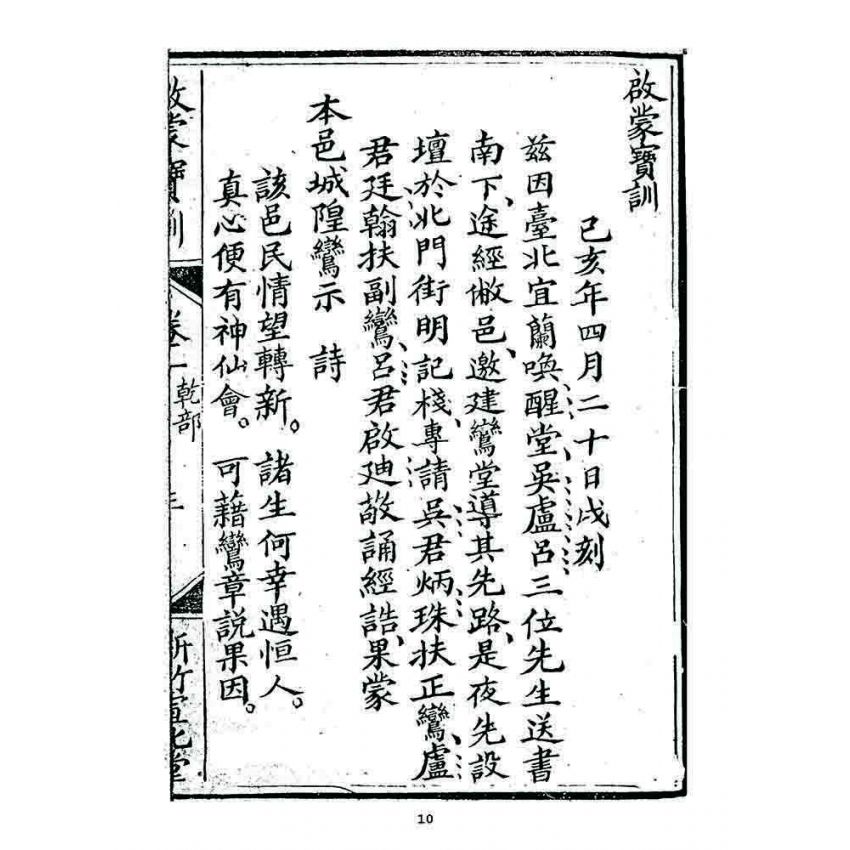 啟蒙寶訓
己亥年四月二十日戌刻
茲因臺北宜蘭喚醒堂吳盧呂三位先生送書
南下、途經僘邑、邀建鸞堂導其先路、是夜先設
壇於北門街明記棧、專請吳君炳珠扶正鸞、盧
君廷翰扶副鸞、呂君啟廸敬誦經誥、果蒙
本邑城隍鸞示 詩
該邑民情望轉新。諸生何幸遇恒人。
真心便有神仙會。可藉鸞章說果因。
啟蒙寶訓 卷一 乾部 新竹宣化堂
10